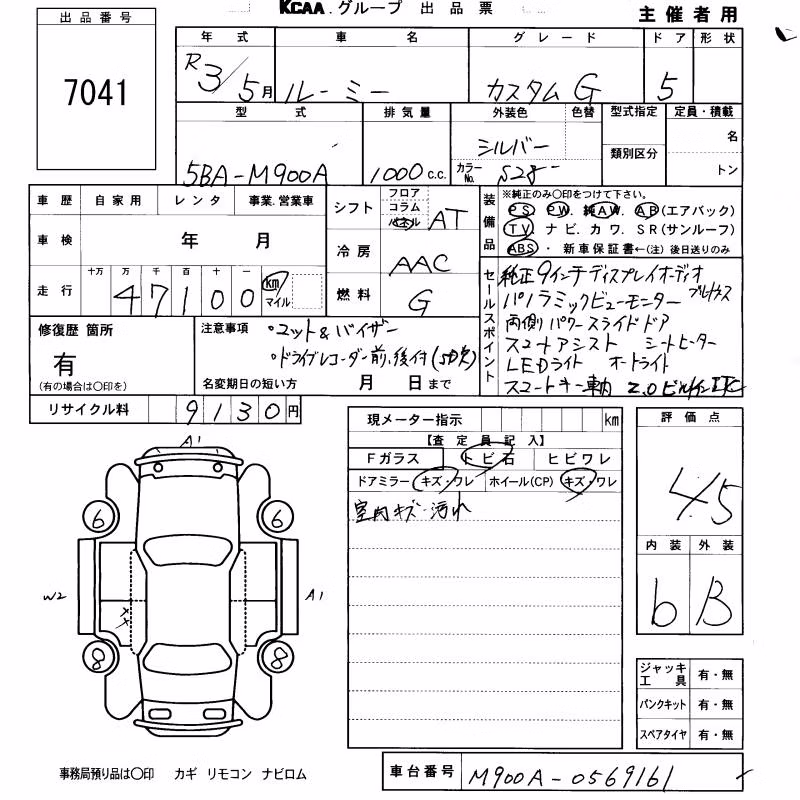 KCAA.グループ 出品票
主催者用
出品番号
7041
年式 車名 グレード ドア 形状
R3/5月 ルーミー カスタムG 5
型式 排気量 外装色 色替 型式指定 定員・積載
シルバー 名
類別区分
5BA-M900A 1000c.c. カラーNo. S28 トン
車歴 自家用 レンタ 事業.営業車
車検 年 月
走行 十万 万 千 百 十 一
47100 km マイル
シフト フロア コラム パネル AT
冷房 AAC
燃料 G
装備品 ※純正のみ〇印をつけて下さい。
PS. PW. 純AW. AB(エアバック)
TV. ナビ. カワ. SR(サンルーフ)
ABS ・ 新車保証書←(注)後日送りのみ
セールスポイント
純正9インチディスプレイオーディオ
パノラミックビューモニター ブルナウス
両側パワースライドドア
スマートアシスト シートヒーター
LEDライト オートライト
スマートキー 2.0ビルトインETC
修復歴 箇所
有
(有の場合は〇印を)
注意事項 ・マット&バイザー
・ドライブレコーダー前.後付
名変期日の短い方 月 日まで
リサイクル料 9130円
現メーター指示 km
【査定員記入】
Fガラス トビ石 ヒビワレ
ドアミラー キズ・ワレ ホイール(CP) キズ・ワレ
室内キズ・汚れ
評価点
4.5
内装 外装
b B
A1
6 6
W2 A1
XX
8 8
ジャッキ工具 有・無
パンクキット 有・無
スペアタイヤ 有・無
事務局預り品は〇印 カギ リモコン ナビロム
車台番号 M900A-0569161